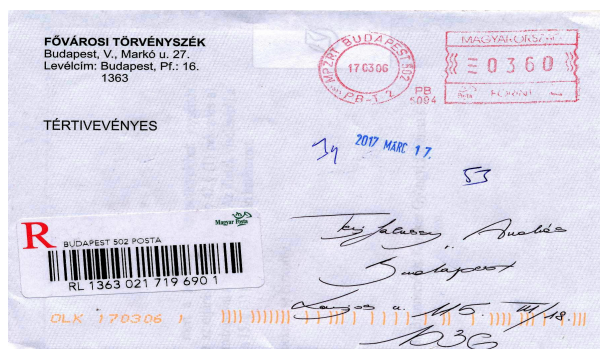 FŐVÁROSI TÖRVÉNYSZÉK
Budapest, V., Markó u. 27.
Levélcím: Budapest, Pf.: 16.
1363
TÉRTIVEVÉNYES
MPZRT BUDAPEST 502
17 03 06
PB-T. 2
PB
5094
MAGYARORSZÁG
0360
FORINT
2017 MÁRC 17.
53
R
Magyar Posta
BUDAPEST 502 POSTA
RL 1363 021 719 690 1
András
Budapest
Lajos u. 115. III/18.
1036
OLK 170306 1